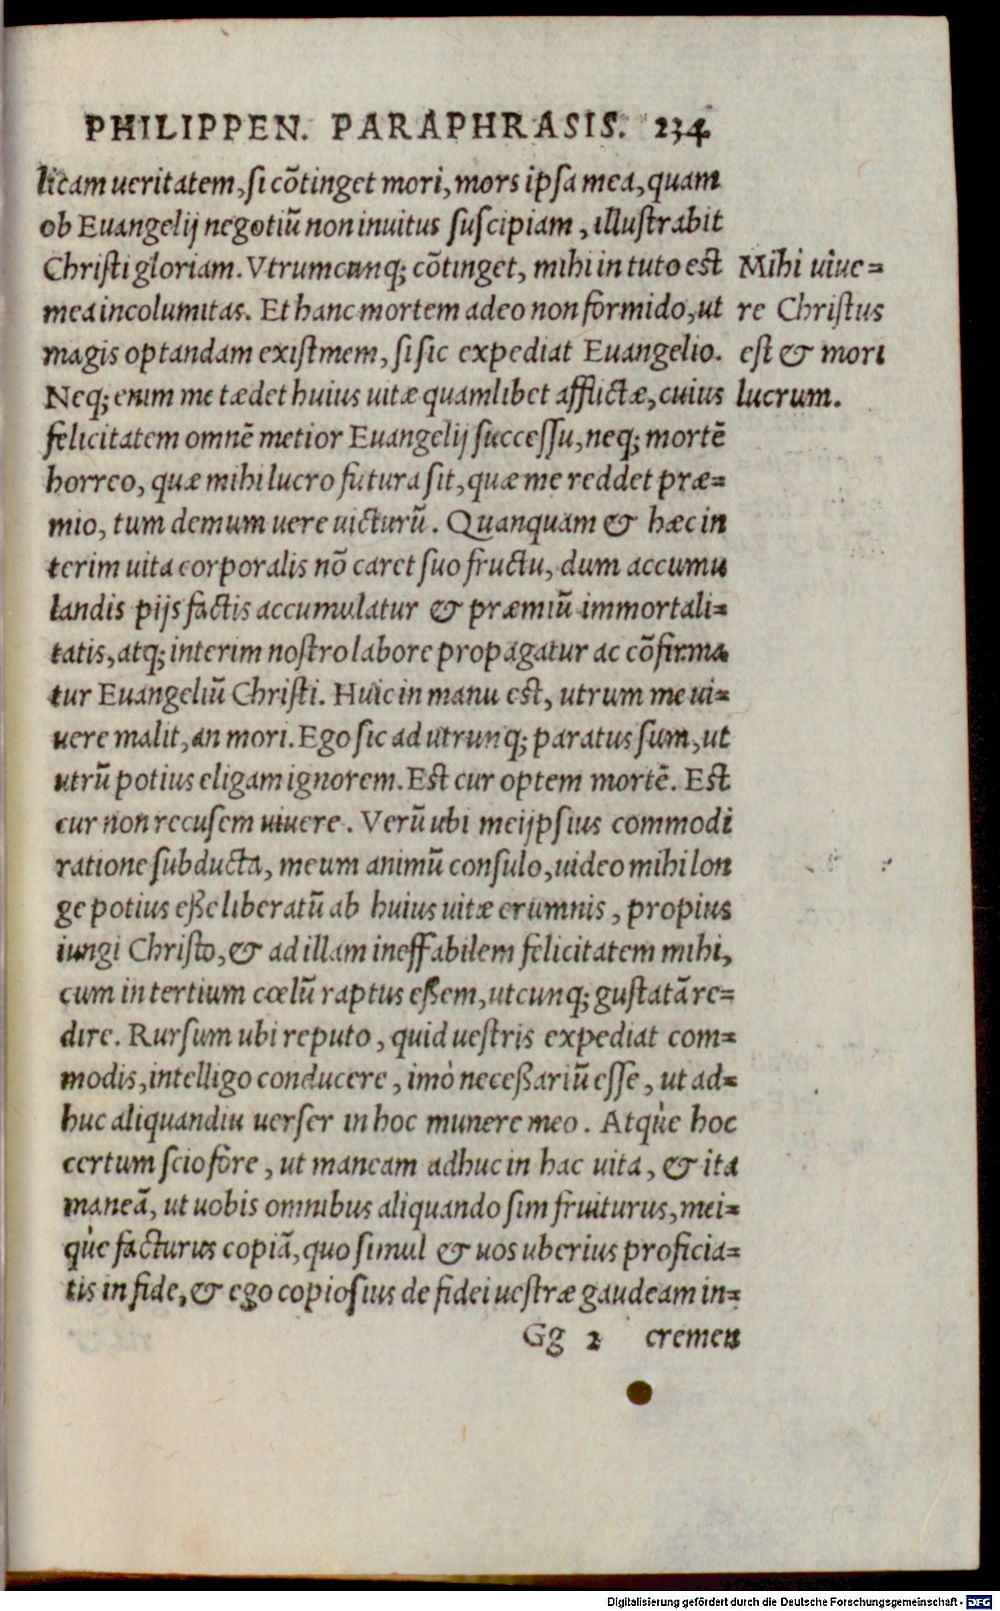 PHILIPPEN. PARAPHRASIS. 234
licam ueritatem, si cõtinget mori, mors ipsa mea, quam
ob Euangelij negotiũ non inuitus suscipiam, illustrabit
Christi gloriam. Vtrumcunq; cõtinget, mihi in tuto est
mea incolumitas. Et hanc mortem adeo non formido, ut
magis optandam existmem, si sic expediat Euangelio.
Neq; enim me tædet huius uitæ quamlibet afflictæ, cuius
felicitatem omnẽ metior Euangelij successu, neq; mortẽ
horreo, quæ mihi lucro futura sit, quæ me reddet præ=
mio, tum demum uere uicturũ. Quanquam & hæc in
terim uita corporalis nõ caret suo fructu, dum accumu
landis pijs factis accumulatur & præmiũ immortali=
tatis, atq; interim nostro labore propagatur ac cõfirma
tur Euangeliũ Christi. Huic in manu est, utrum me ui=
uere malit, an mori. Ego sic ad utrunq; paratus sum, ut
utrũ potius eligam ignorem. Est cur optem mortẽ. Est
cur non recusem uiuere. Verũ ubi meijpsius commodi
ratione subducta, meum animũ consulo, uideo mihi lon
ge potius eße liberatũ ab huius uitæ erumnis, propius
iungi Christo, & ad illam ineffabilem felicitatem mihi,
cum in tertium cœlũ raptus eßem, utcunq; gustatã re=
dire. Rursum ubi reputo, quid uestris expediat com=
modis, intelligo conducere, imò neceßariũ esse, ut ad=
huc aliquandiu uerser in hoc munere meo. Atq̀ue hoc
certum scio fore, ut maneam adhuc in hac uita, & ita
maneã, ut uobis omnibus aliquando sim fruiturus, mei=
q̀ue facturus copiã, quo simul & uos uberius proficia=
tis in fide, & ego copiosius de fidei uestræ gaudeam in=
Gg 2 cremen
Mihi uiue=
re Christus
est & mori
lucrum.
Digitalisierung gefördert durch die Deutsche Forschungsgemeinschaft - DFG